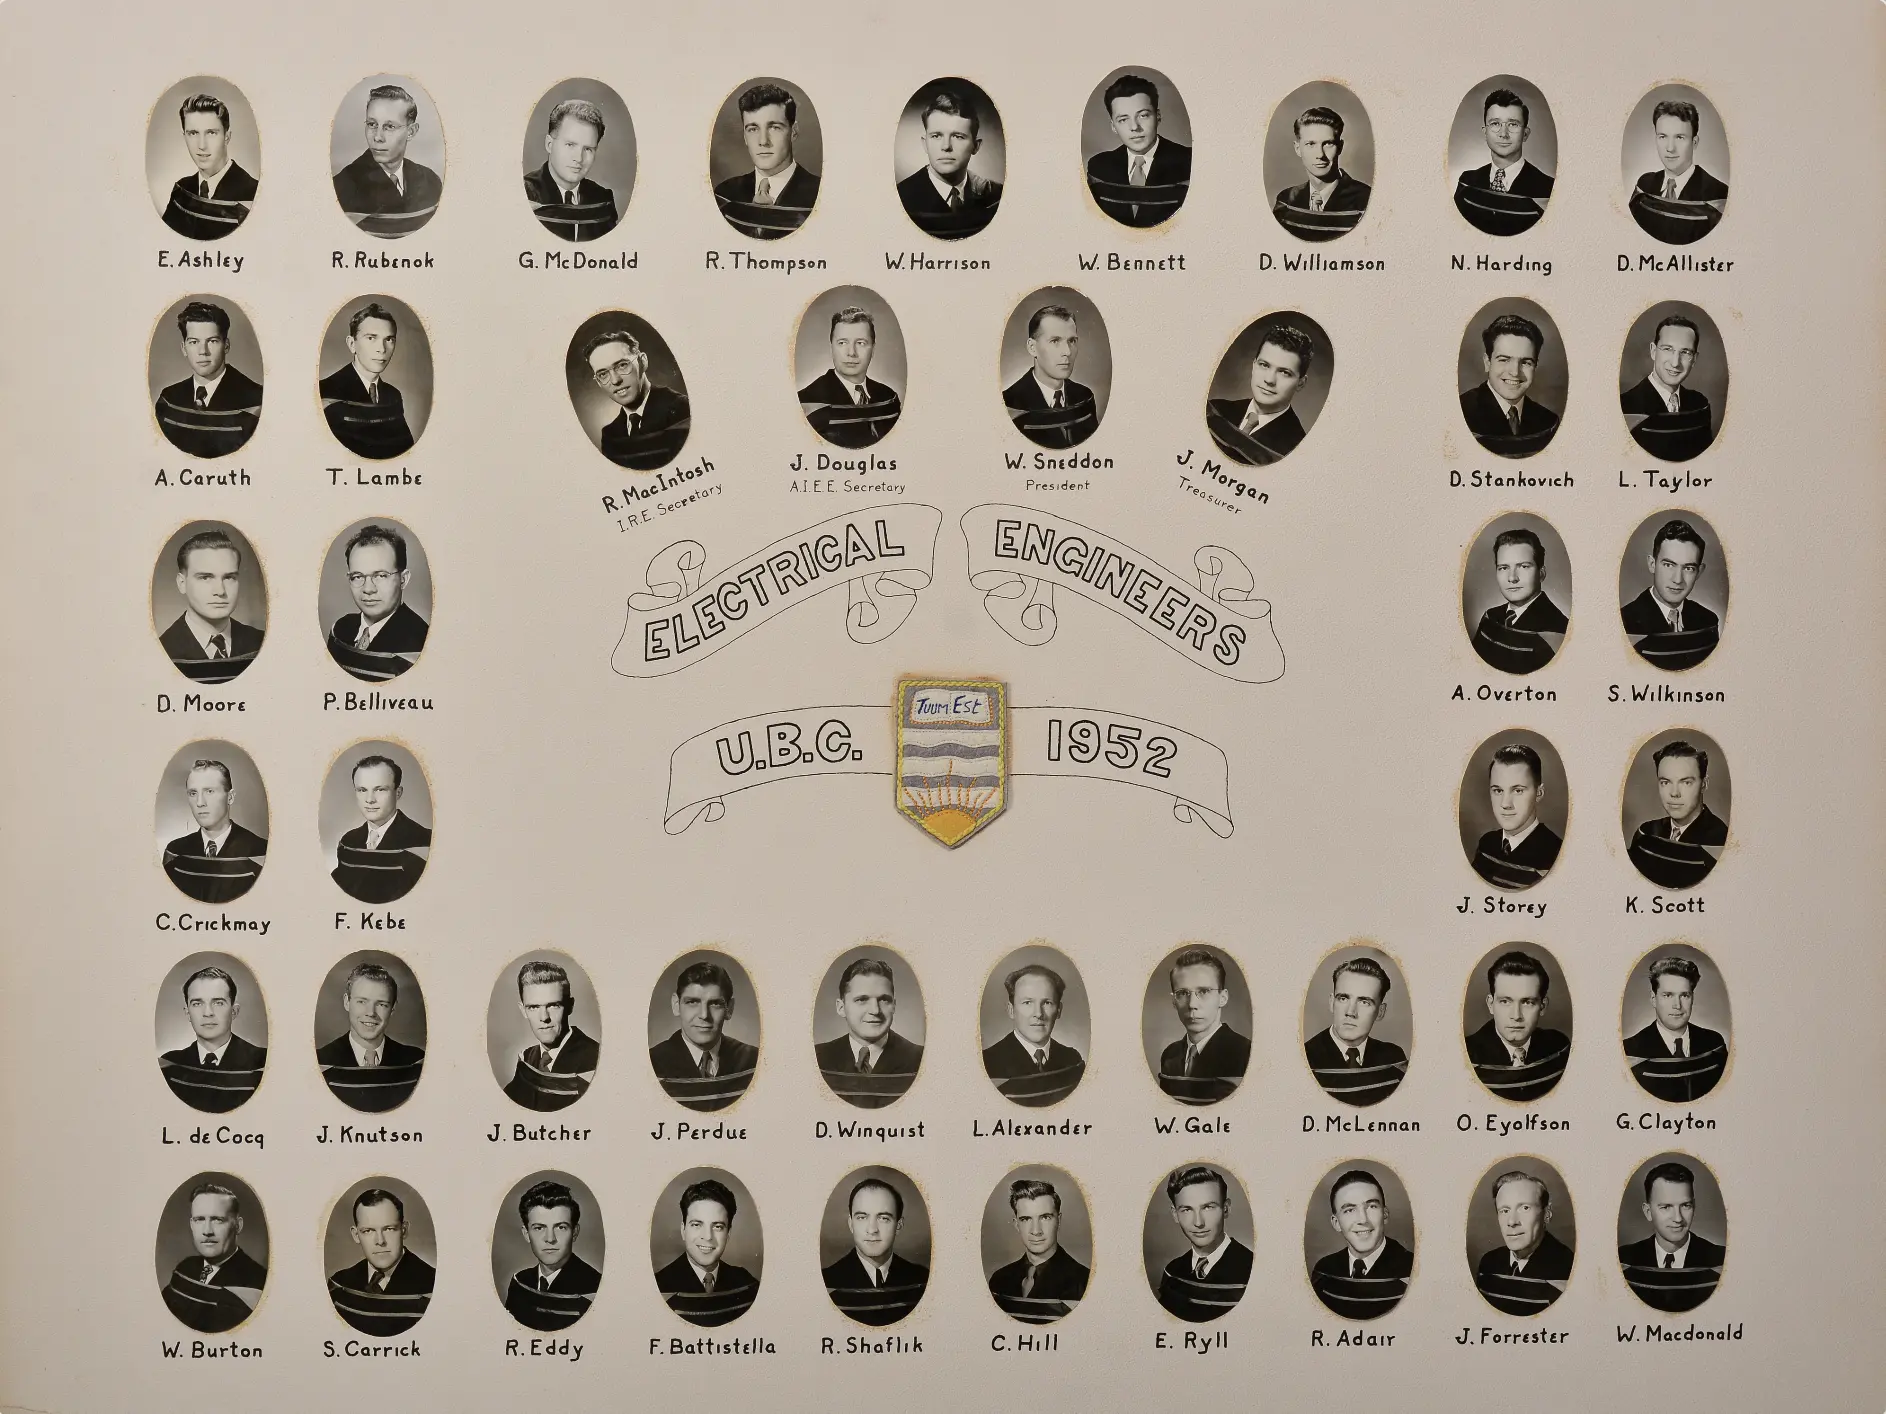 E. Ashley
R. Rubenok
G. McDonald
R. Thompson
W. Harrison
W. Bennett
D. Williamson
N. Harding
D. McAllister
A. Caruth
T. Lambe
R. MacIntosh
I.R.E. Secretary
J. Douglas
A.I.E.E. Secretary
W. Sneddon
President
J. Morgan
Treasurer
D. Stankovich
L. Taylor
ELECTRICAL ENGINEERS
D. Moore
P. Belliveau
A. Overton
S. Wilkinson
TUUM EST
U.B.C. 1952
C. Crickmay
F. Kebe
J. Storey
K. Scott
L. de Cocq
J. Knutson
J. Butcher
J. Perdue
D. Winquist
L. Alexander
W. Gale
D. McLennan
O. Eyolfson
G. Clayton
W. Burton
S. Carrick
R. Eddy
F. Battistella
R. Shaflik
C. Hill
E. Ryll
R. Adair
J. Forrester
W. Macdonald